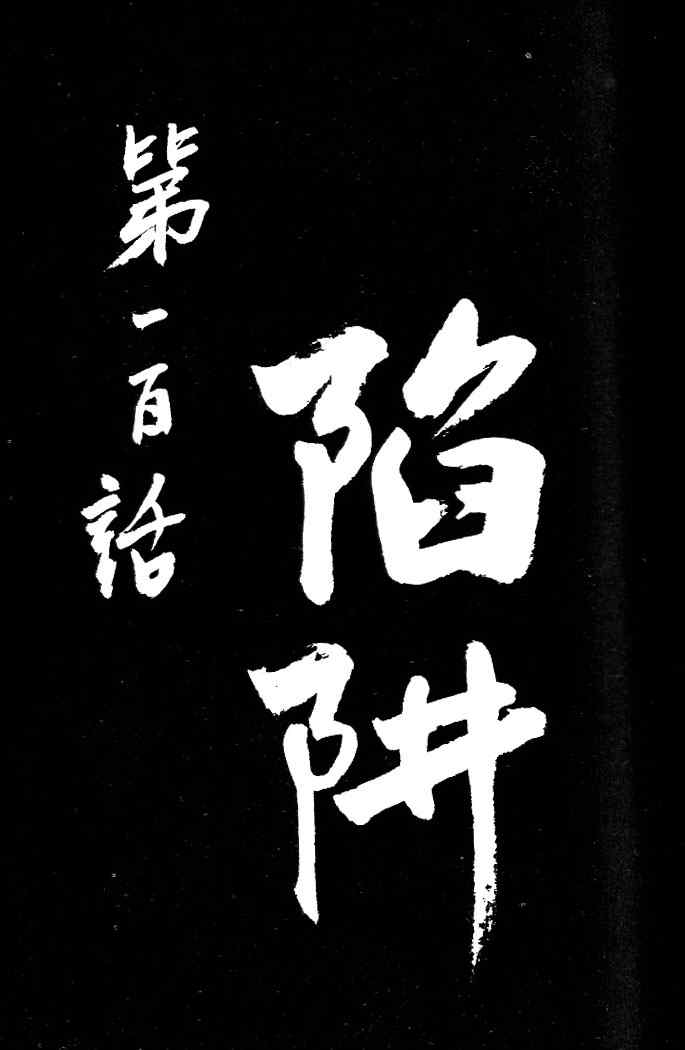 陥阱
第一百話